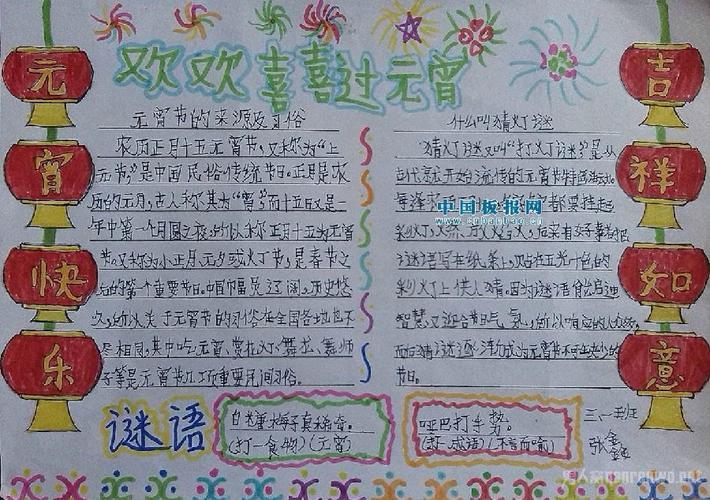 欢欢喜喜过元宵
元
宵
快
乐
元宵节的来源及习俗
农历正月十五元宵节,又称为“上
元节”,是中国民俗传统节日。正月是农
历的元月,古人称其为“宵”,而十五又是一
年中第一个月圆之夜,所以称正月十五为元宵
节。又称为小正月、元夕或灯节,是春节之
后的第一个重要节日。中国幅员辽阔,历史悠
久,所以关于元宵节的习俗在全国各地也不
尽相同,其中吃元宵、赏花灯、舞龙、舞狮
子等是元宵节几项重要民间习俗。
什么叫猜灯谜
“猜灯谜”又叫“打灯谜”,是从
古代就开始流传的元宵节特色活动。
每逢 都要挂起
彩灯,燃放 火,后来有好事者把
谜语写在纸条上,贴在五光十色的
彩灯上供人猜。因为谜语能启迪
智慧,又迎合节日气氛,所以响应的人众多,
而后猜谜逐渐成为元宵节不可缺少的
节目。
中国板报网
吉
祥
如
意
谜语
(打一食物)(元宵)
哑巴打手势。
(打一成语)(不言而喻)
三、一班
张